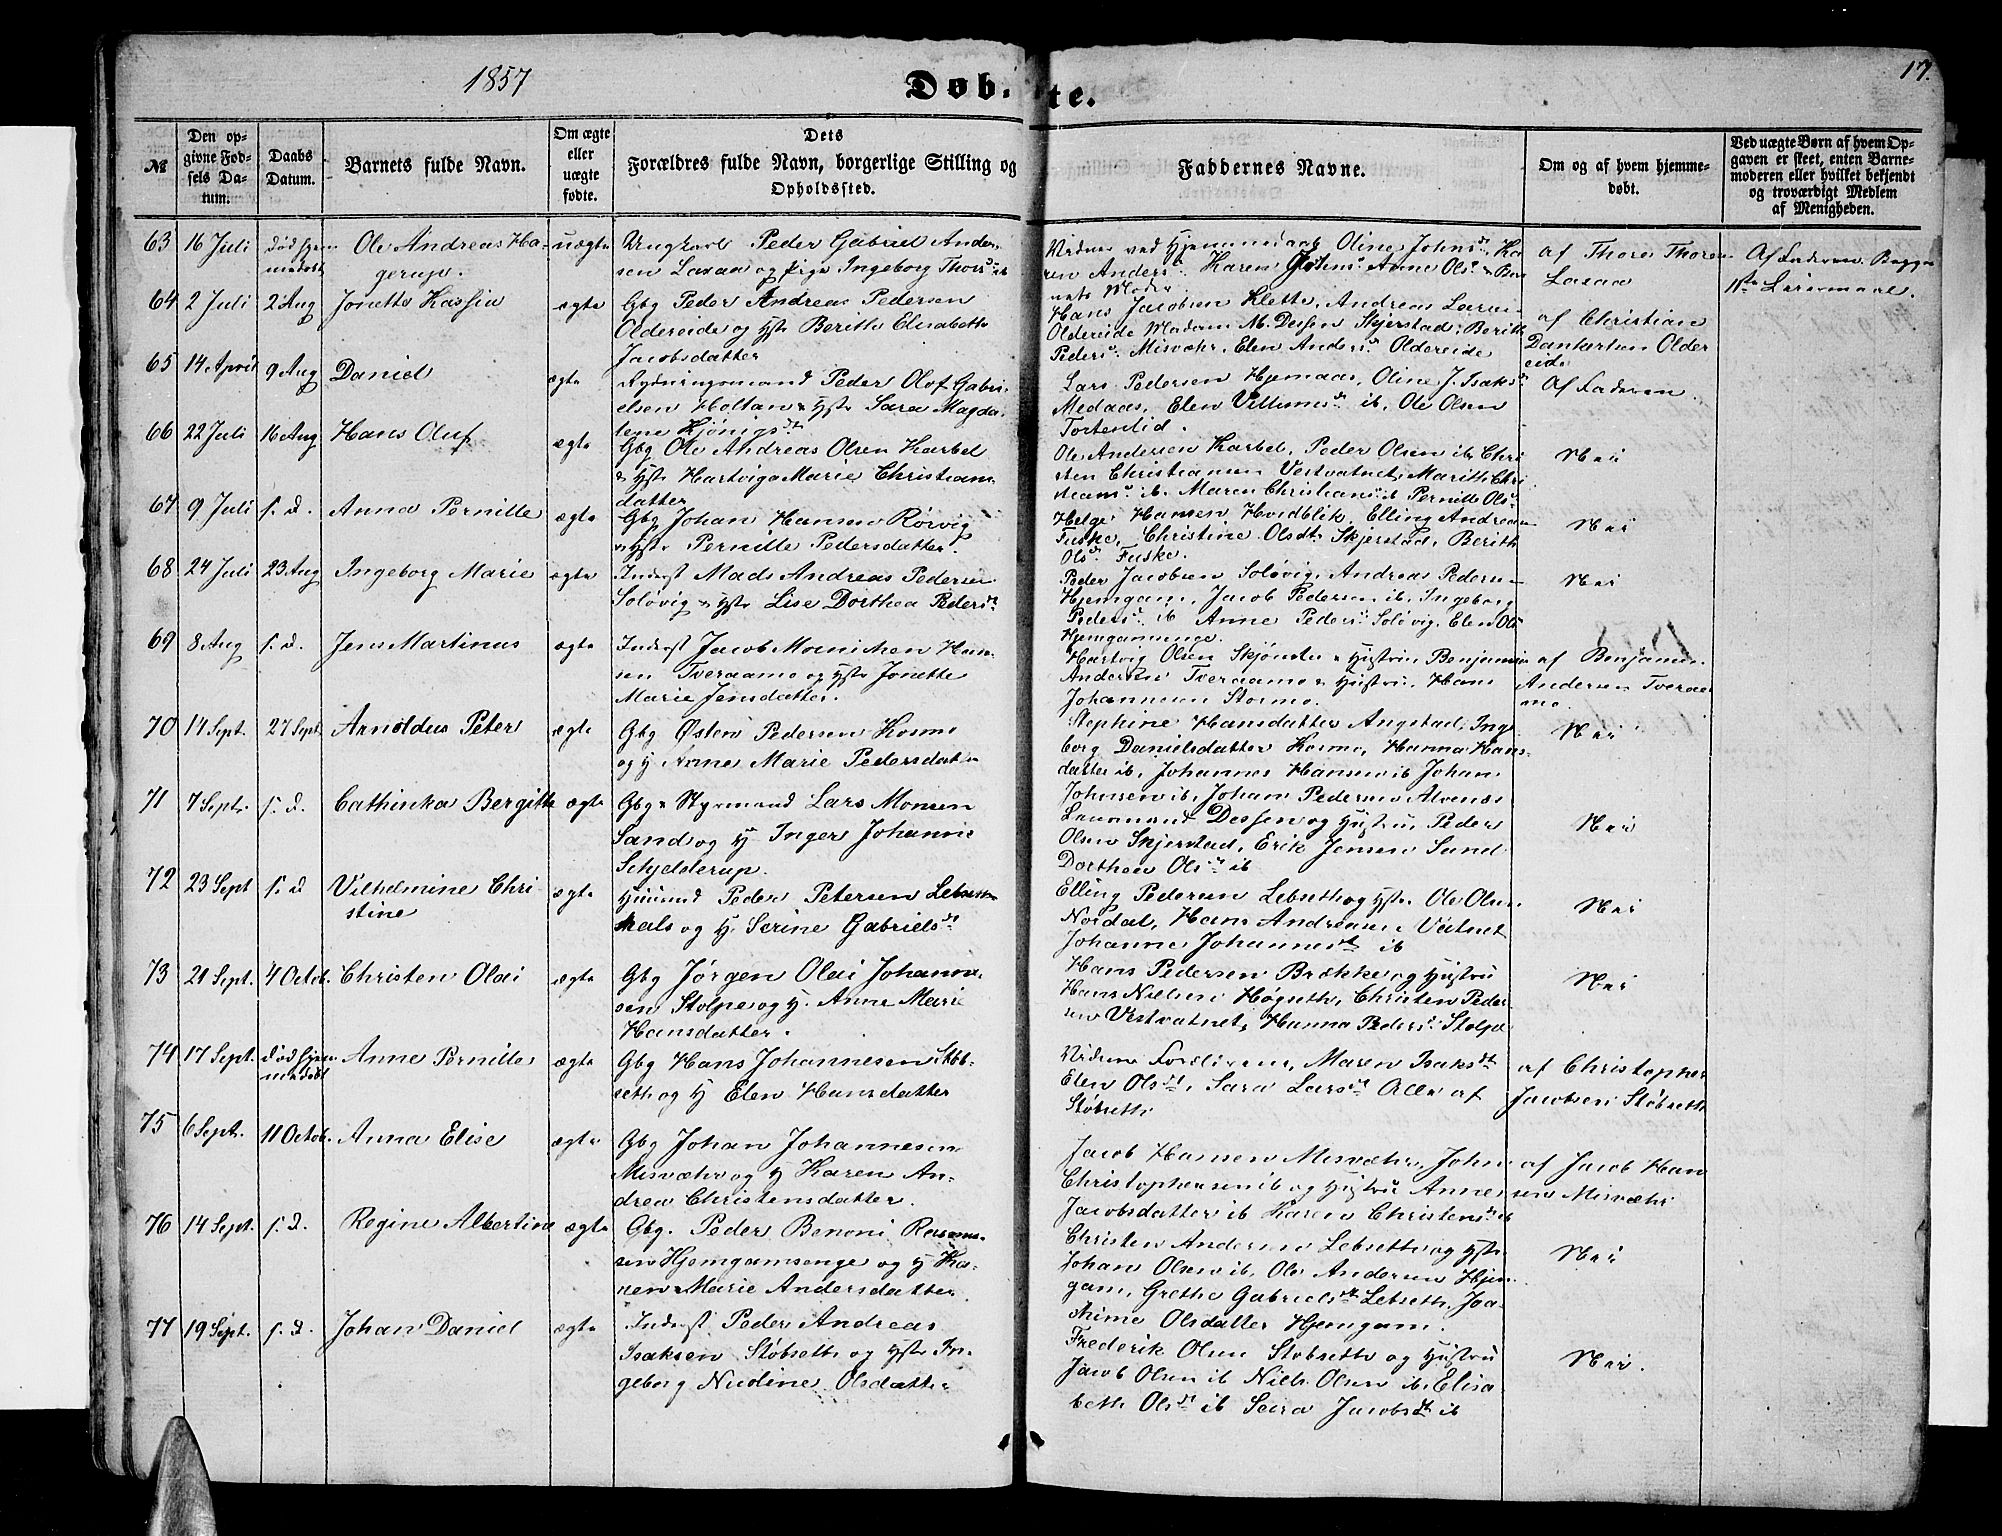 1857
Døbte.
17.
№
Den opgivne Fødsels Datum.
Daabs Datum.
Barnets fulde Navn.
Om ægte eller uægte fødte.
Dets Forældres fulde Navn, borgerlige Stilling og Opholdssted.
Faddernes Navne.
Om og af hvem hjemmedøbt.
Ved uægte Børn af hvem Opgaven er skeet, enten Barnemoderen eller hvilket bekjendt og troværdigt Medlem af Menigheden.
63 16 Juli død hjemmedøbt Ole Andreas Hagerup. uægte
Ungkarl Peder Gabriel Andersen Laxaa og pige Ingeborg Thors dt
Vidner ved Hjemmedaab Oline Johnsd. Karen Andersd. Karen Anne Olsd
af Thore Thoresen Laxaa
Af Faderen Begges 1ste Leiermaal.
64 2 Juli 2 Aug Jonette Hassia ægte
Gbg Peder Andreas Pedersen
Oldereide og Hst Berith Elisabeth
Jacobsdatter
Hans Jacobsen Klette, Andreas
Oldereide Madam M. Dessen Skjerstad, Berith
Peders d. Misvær, Elen Anders d Oldereide
af Christian Dankertsen Oldereide
65 14 April 9 Aug Daniel ægte
Rydningsmand Peder Olof Gabrielsen Holtan & Hst Sara Magdalene Kjønigsdt
Lars Pedersen Hjemaas, Oline J. Isaksd
Medaas, Elen Villumsd ib, Ole Olsen
Tortenlid.
Af Faderen.
66 22 Juli 16 Aug Hans Oluf ægte
Gbg Ole Andreas Olsen Karbøl
& Hst Hartviga Marie Christiansdatter
Ole Andersen Karbøl, Peder Olsen ib, Christen Christiansen Vestvatnet, Marith Christiansd. ib. Maren Christiansd ib Pernille Olsd
Nei
67 9 Juli s. d. Anna Pernille ægte
Gbg Johan Hansen Rørvig
& Hst Pernille Pedersdatter.
Helge Hansen Hvidblik, Elling Andreasen
Fuske, Christine Olsdt Skjerstad, Berith
Olsd. Fuske.
Nei
68 24 Juli 23 Aug Ingeborg Marie ægte
Inderst Mads Andreas Pedersen
Soløvig & Hst Lise Dorthea Peders dt
Peder Jacobsen Soløvig, Andreas Pedersen
Hjemgam, Jacob Pedersen ib, Ingeborg
Pedersd. ib Anne Pedersd Soløvig, Elen Olsd
Hjemgamsenge.
Nei
69 8 Aug s. d. Jens Martinus ægte
Inderst Jacob Moenichen Hansen Tveraamo og Hst Jonette
Marie Jensdatter.
Hartvig Olsen Skjønsta & Hustru Benjamin
Andersen Tveraamo & Hustru, Hans
Johannesen Stormo.
af Benjamin Andersen Tveraamo.
70 14 Sept. 27 Sept Arnoldus Peter ægte
Gbg Østen Pedersen Kosmo
og H. Anne Marie Pedersdatter
Stephine Hansdatter Angstad, Ingeborg Danielsdatter Kosmo, Hanna Hansdatter ib, Johannes Hansen ib Johan
Johnsen ib, Johan Pedersen Alvenes
Nei
71 7 Sept. s. d. Cathinka Bergitte ægte
Gbg & Styrmand Lars Monsen
Sand og H Inger Johanne
Schjelderup.
Lensmand Dessen og Hustru, Peder
Olsen Skjerstad, Erik Jensen Sand
Dorthea Ols dt ib
Nei
72 23 Sept s. d Vilhelmine Christine ægte
Huusmd Peder Petersen
og H. Serine Gabriels dt
Elling Pedersen Lebseth og Hst. Ole Olsen
Nordal, Hans Andreasen Vatnet
Johanne Johannesdt ib
Nei
73 21 Sept. 4 Octob. Christen Olai ægte
Gbg Jørgen Olai Johannesen Stolpe og H. Anne Marie
Hansdatter.
Hans Pedersen Brække og Hustru
Hans Nielsen Høgseth, Christen Pedersen Vestvatnet, Hanna Pedersd. Stolpe
Nei
74 17 Sept. død hjemmedøbt Anne Pernille ægte
Gbg Hans Johannesen Støbseth og H Elen Hansdatter
Vidner Forældrene, Maren Isaksdt
Elen Olsdt, Sara Larsdt Alle af
Støbseth
af Christopher Jacobsen Støbseth
75 6 Sept. 11 Octob. Anna Elise ægte
Gbg Johan Johannesen
Misvær og H Karen Andrea Christensdatter.
Jacob Hansen Misvær, John
Christophersen ib og Hustru Anne
Jacobsdatter ib Karen Christensd ib
af Jacob Hansen Misvær
76 14 Sept. s. d. Regine Albertine ægte
Gbg. Peder Benoni Rasmussen Hjemgamsenge og H Karen Marie Andersdatter
Christen Andersen Lebseth og Hst
Johan Olsen ib, Ole Andersen Hjemgam, Grethe Gabrielsdt Lebseth, Joakime Olsdatter Hjemgam.
Nei
77 19 Sept. s. d. Johan Daniel ægte
Inderst Peder Andreas
Isaksen Støbseth og Hst Ingeborg Nicdine Olsdatter
Frederik Olsen Støbseth og Hustru
Jacob Olsen ib Niels Olsen ib, Elisabeth Ols dt ib Sara Jacobsdt ib
Nei.